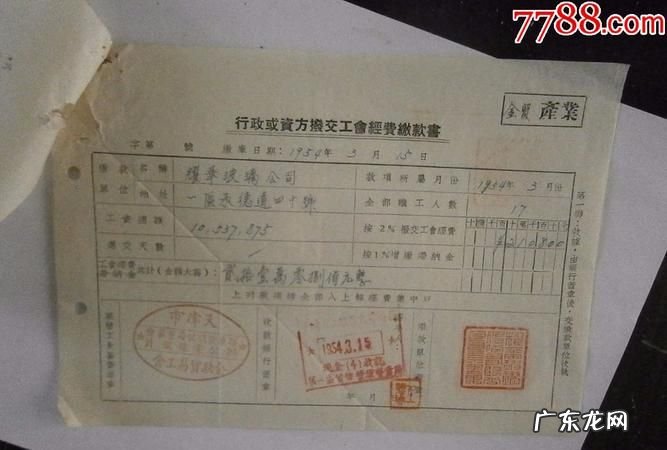 7788.com
金貿 產業
行政或資方撥交工會經費繳款書
字第 號 繳庫日期：1954年 3 月 15日
繳款名稱 耀華玻璃公司 款項所屬月份 1954年 3 月份
單位地址 一區承德道四十號 全部職工人數 17
工資總額 10,537,875 按2%撥交工會經費 ¥210800
遲交天數 按1%增繳滯納金
工會經費 滯納金 共計(金額大寫) 貳拾壹萬零捌佰元整
上列款項請全部入上級經費集中戶
第一聯：收據，由銀行蓋章後，交繳款單位收執
天津市
收款銀行蓋章
1954.3.15
現金(4)收訖
年 月
广东龙网